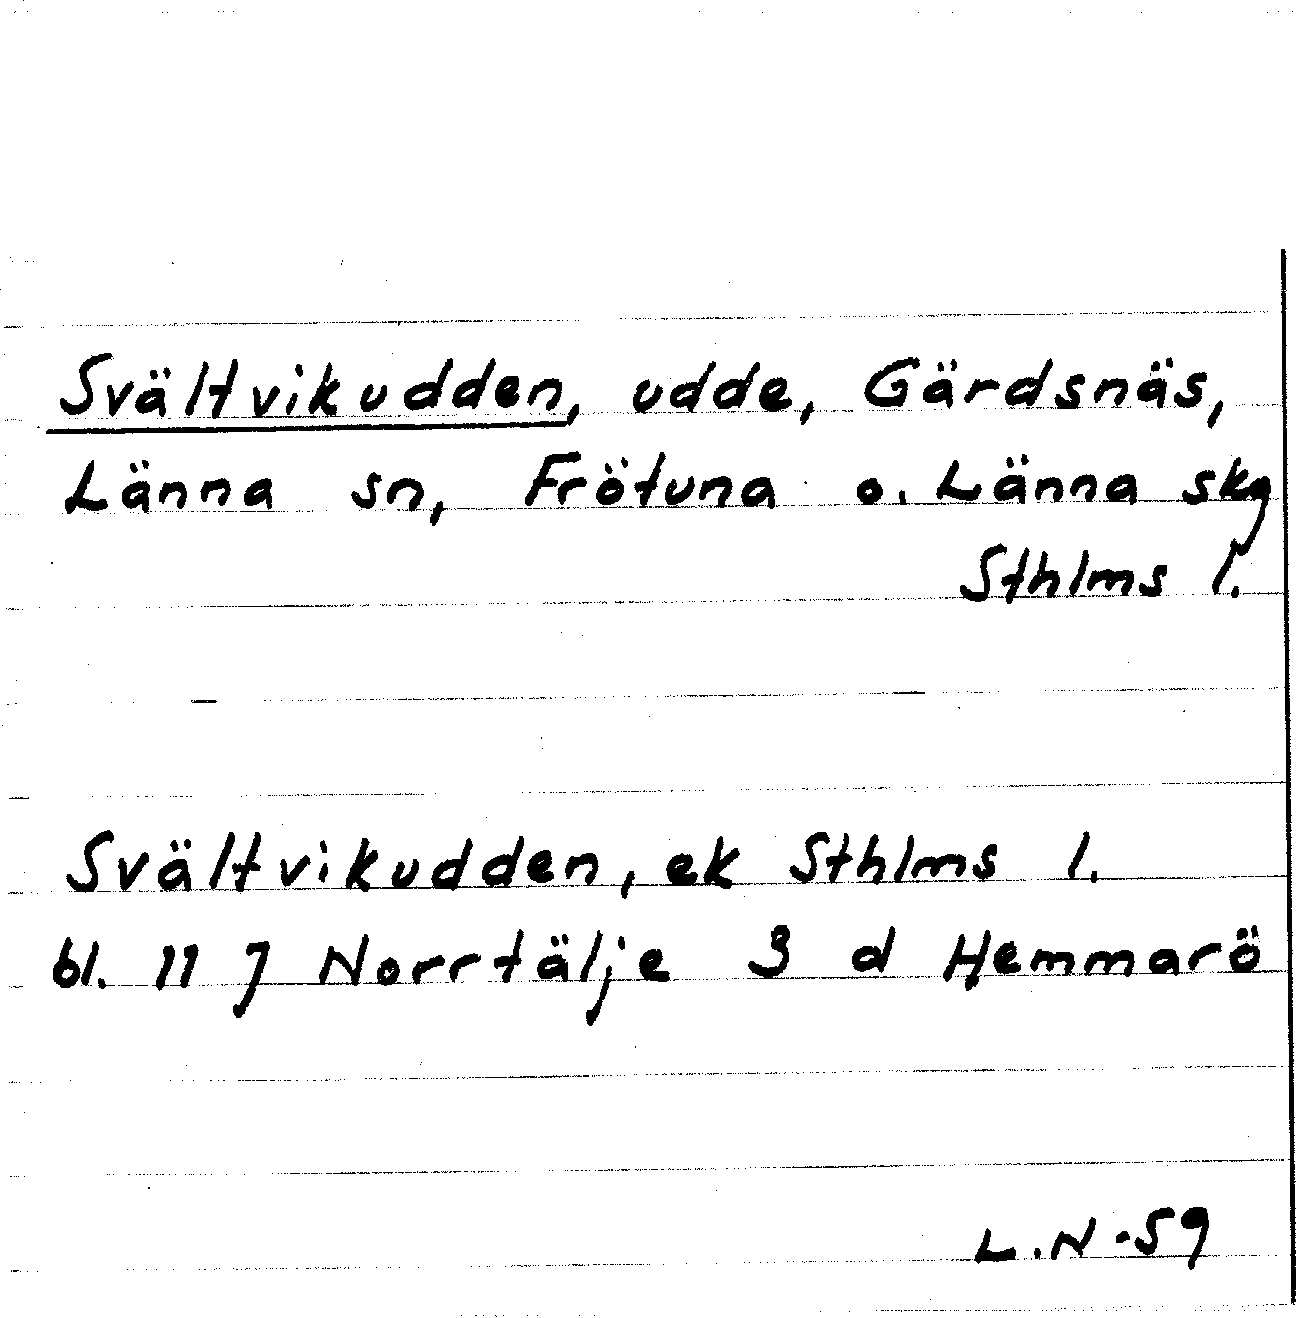 Svältvikudden, udde, Gärdsnäs,
Länna sn, Frötuna o. Länna skg
Sthlms l.
Svältvikudden, ek Sthlms l.
bl. 11 J Norrtälje 3 d Hemmarö
L.N -59